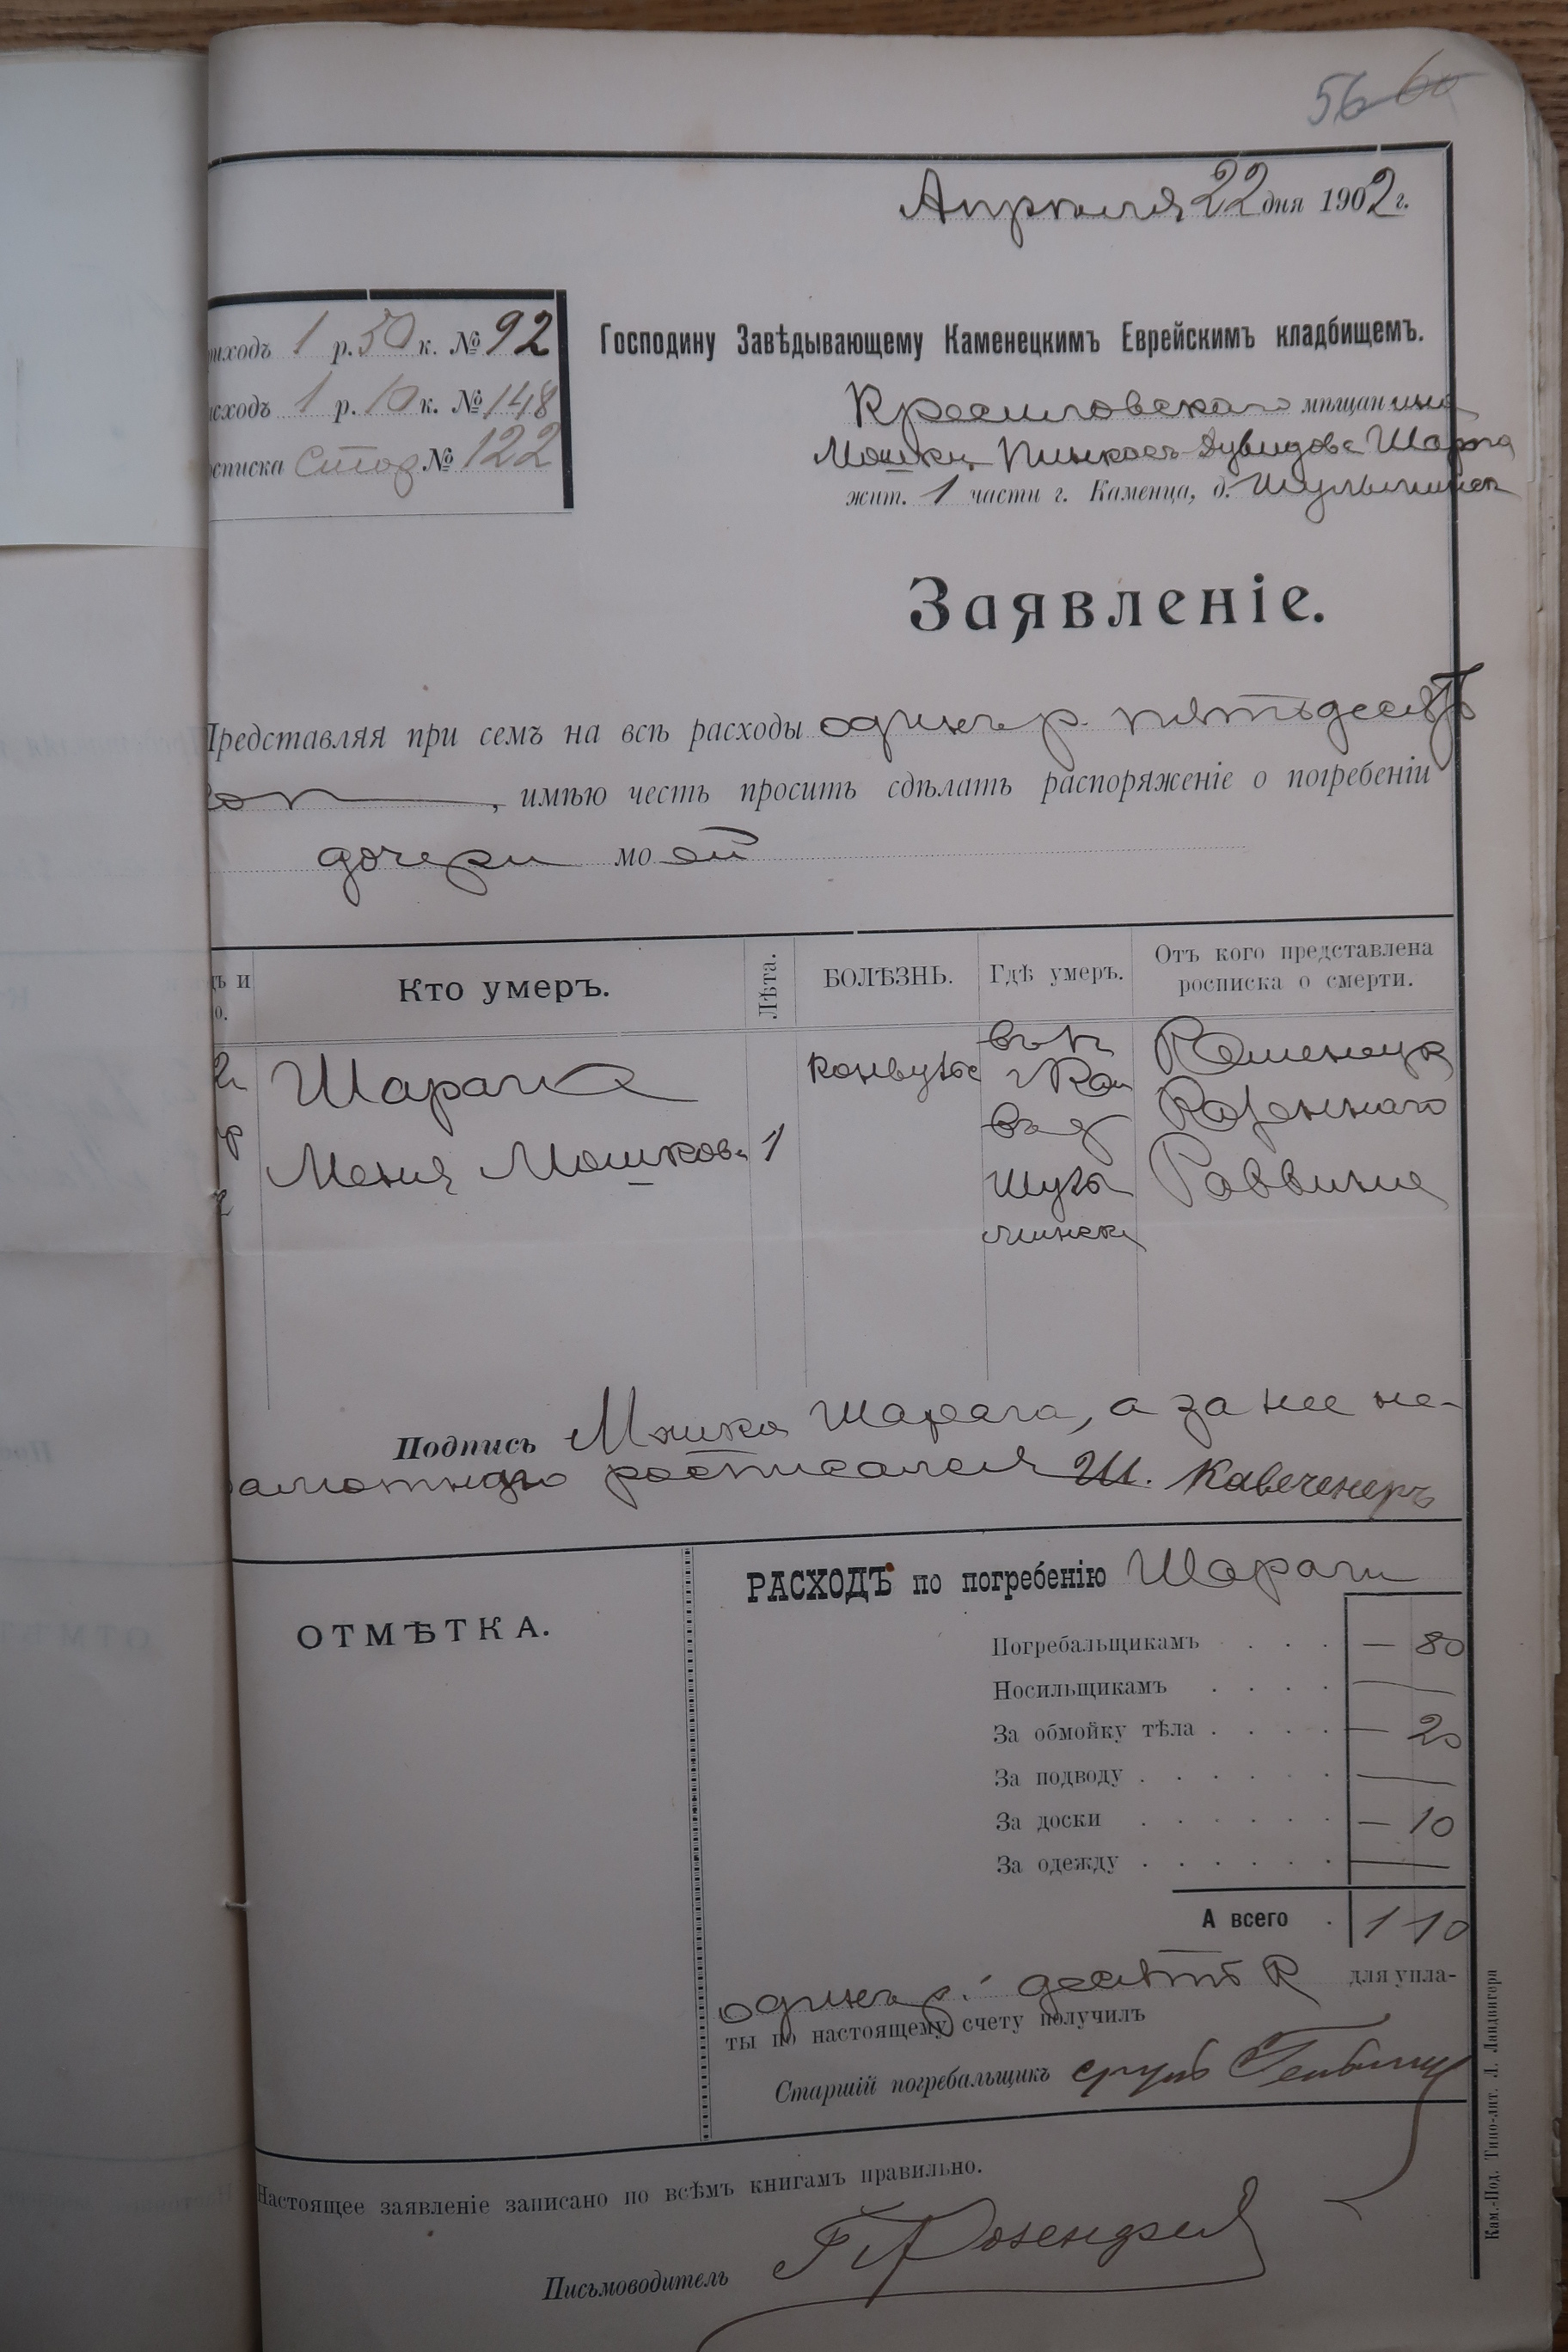 56 60
Апрѣля 22 дня 1902 г.
риходъ 1 р. 50 к. № 92
асходъ 1 р. 10 к. № 148
осписка №122
Господину Завѣдывающему Каменецкимъ Еврейскимъ кладбищемъ.
мѣщанина
Мошки Пинкасъ-Дувидова Шарага
жит. 1 части г. Каменца, д.
Заявленіе.
Представляя при семъ на всѣ расходы одинъ р. пятьдесятъ
коп , имѣю честь просить сдѣлать распоряженіе о погребеніи
дочери моей
ъ и
о.
Кто умеръ.
Лѣта.
БОЛѢЗНЬ.
Гдѣ умеръ.
Отъ кого представлена
росписка о смерти.
Шарага
Меня Мошкова
1
Конвульс
въ
г Кам
въ д
Шуль
минск
Каменецк
Казеннаго
Раввина
Подпись Мошка Шарага, а за нее не-
рамотнаго росписался Ш. Кавеченеръ
ОТМѢТКА.
РАСХОДЪ по погребенію Шараги
Погребальщикамъ . . . — 80
Носильщикамъ . . . . —
За обмойку тѣла . . . . — 20
За подводу . . . . . . —
За доски . . . . . . — 10
За одежду . . . . . . —
А всего . 1 10
одинъ р. десять к для упла-
ты по настоящему счету получилъ
Старшій погребальщикъ
Настоящее заявленіе записано по всѣмъ книгамъ правильно.
Письмоводитель
Кам.-Под. Типо-лит. Л. Ландвигера